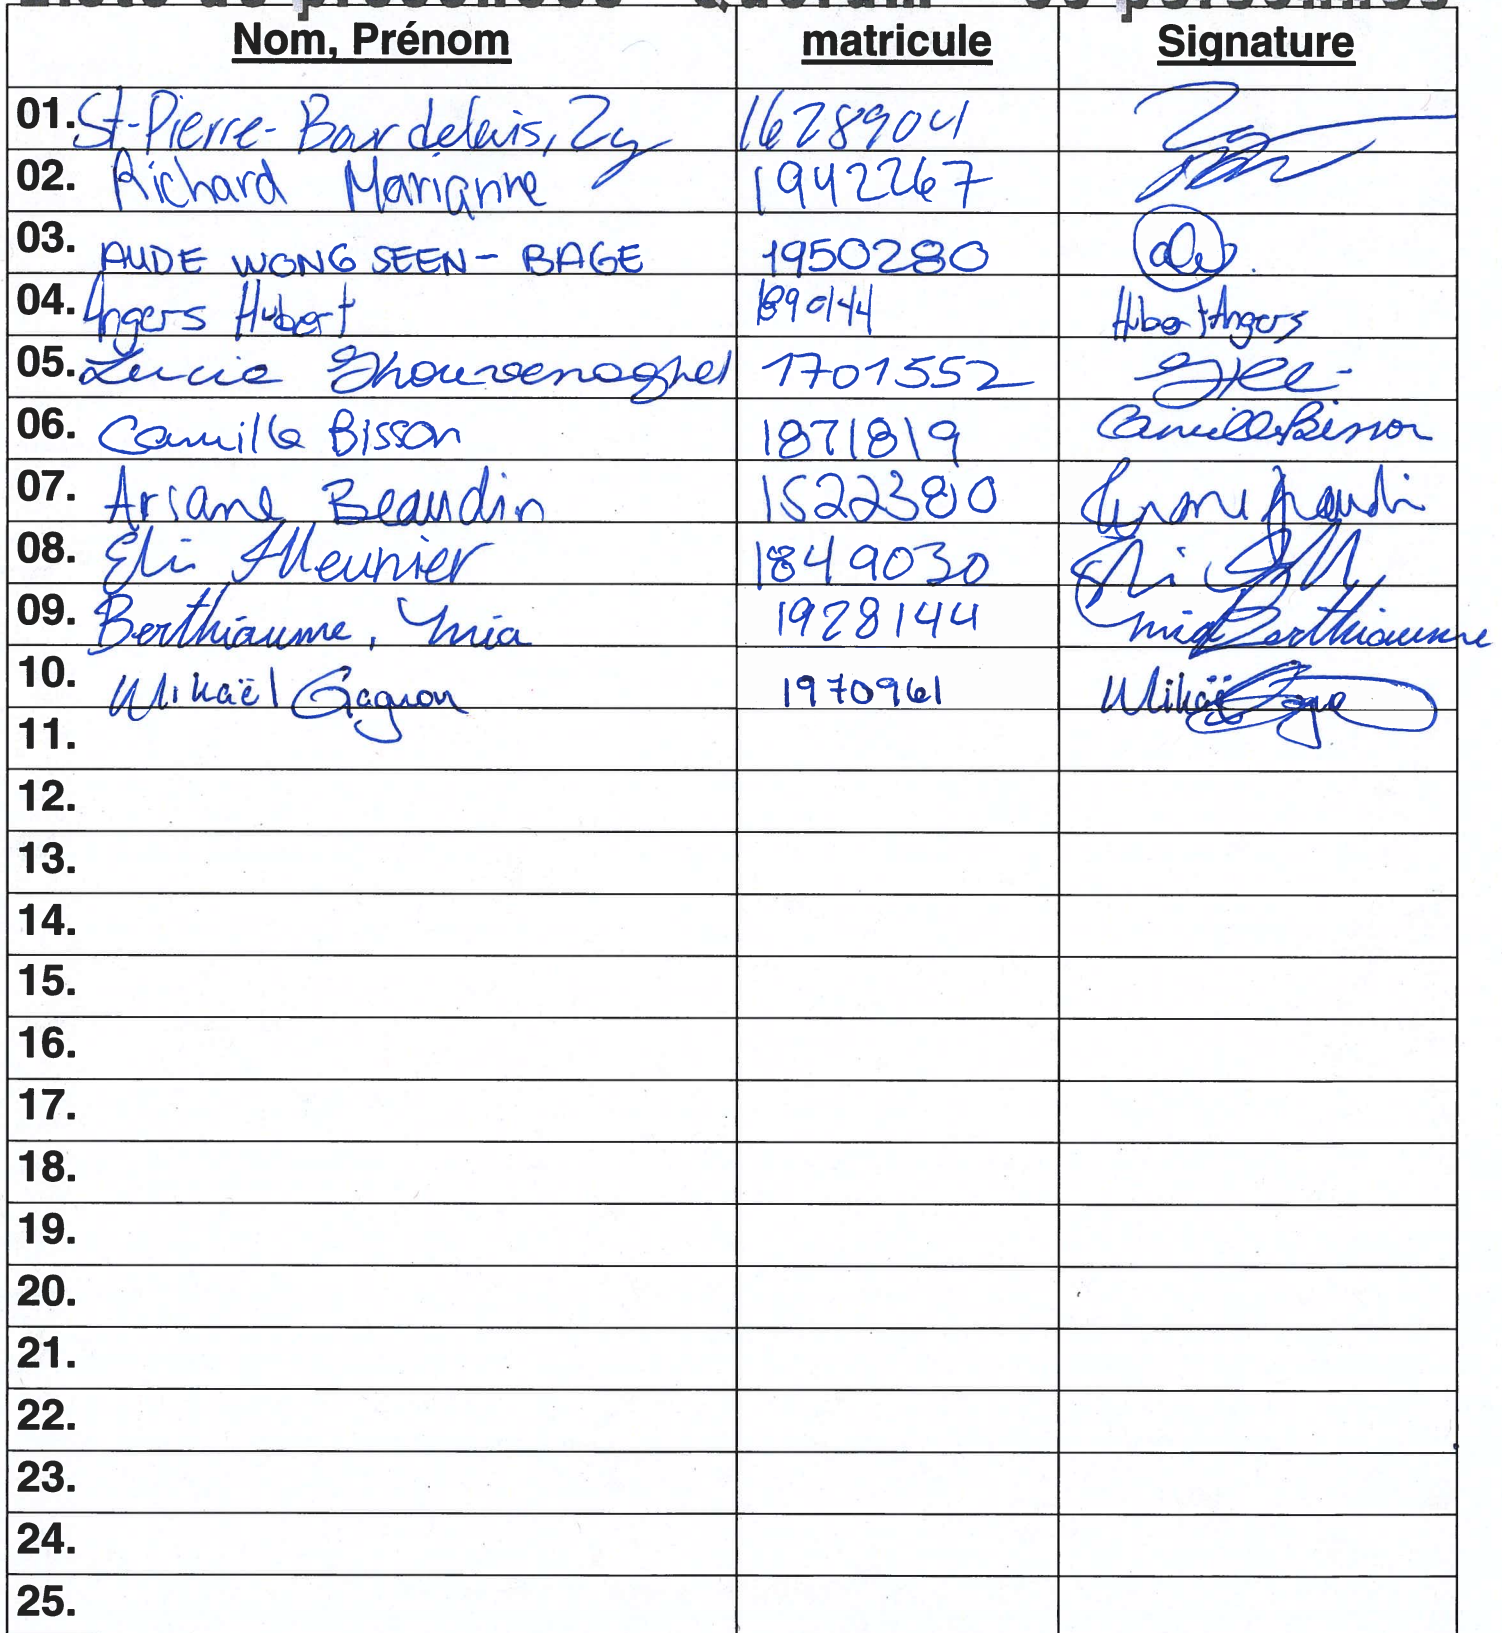 Nom, Prénom matricule Signature
01. St-Pierre-Bourdelais, Zy 1628904
02. Richard Marianne 1942267
03. AUDE WONG SEEN-BAGE 1950280
04. Angers Hubert 1890144 Hubert Angers
05. Lucie 1701552
06. Camille Bisson 1871819 Camille Bisson
07. Ariane Beaudin 1522380 Ariane Beaudin
08. Eli Meunier 1849030
09. Berthiaume, Mia 1928144 Mia Berthiaume
10. Mikaël Gagnon 1970961 Mikaël
11.
12.
13.
14.
15.
16.
17.
18.
19.
20.
21.
22.
23.
24.
25.